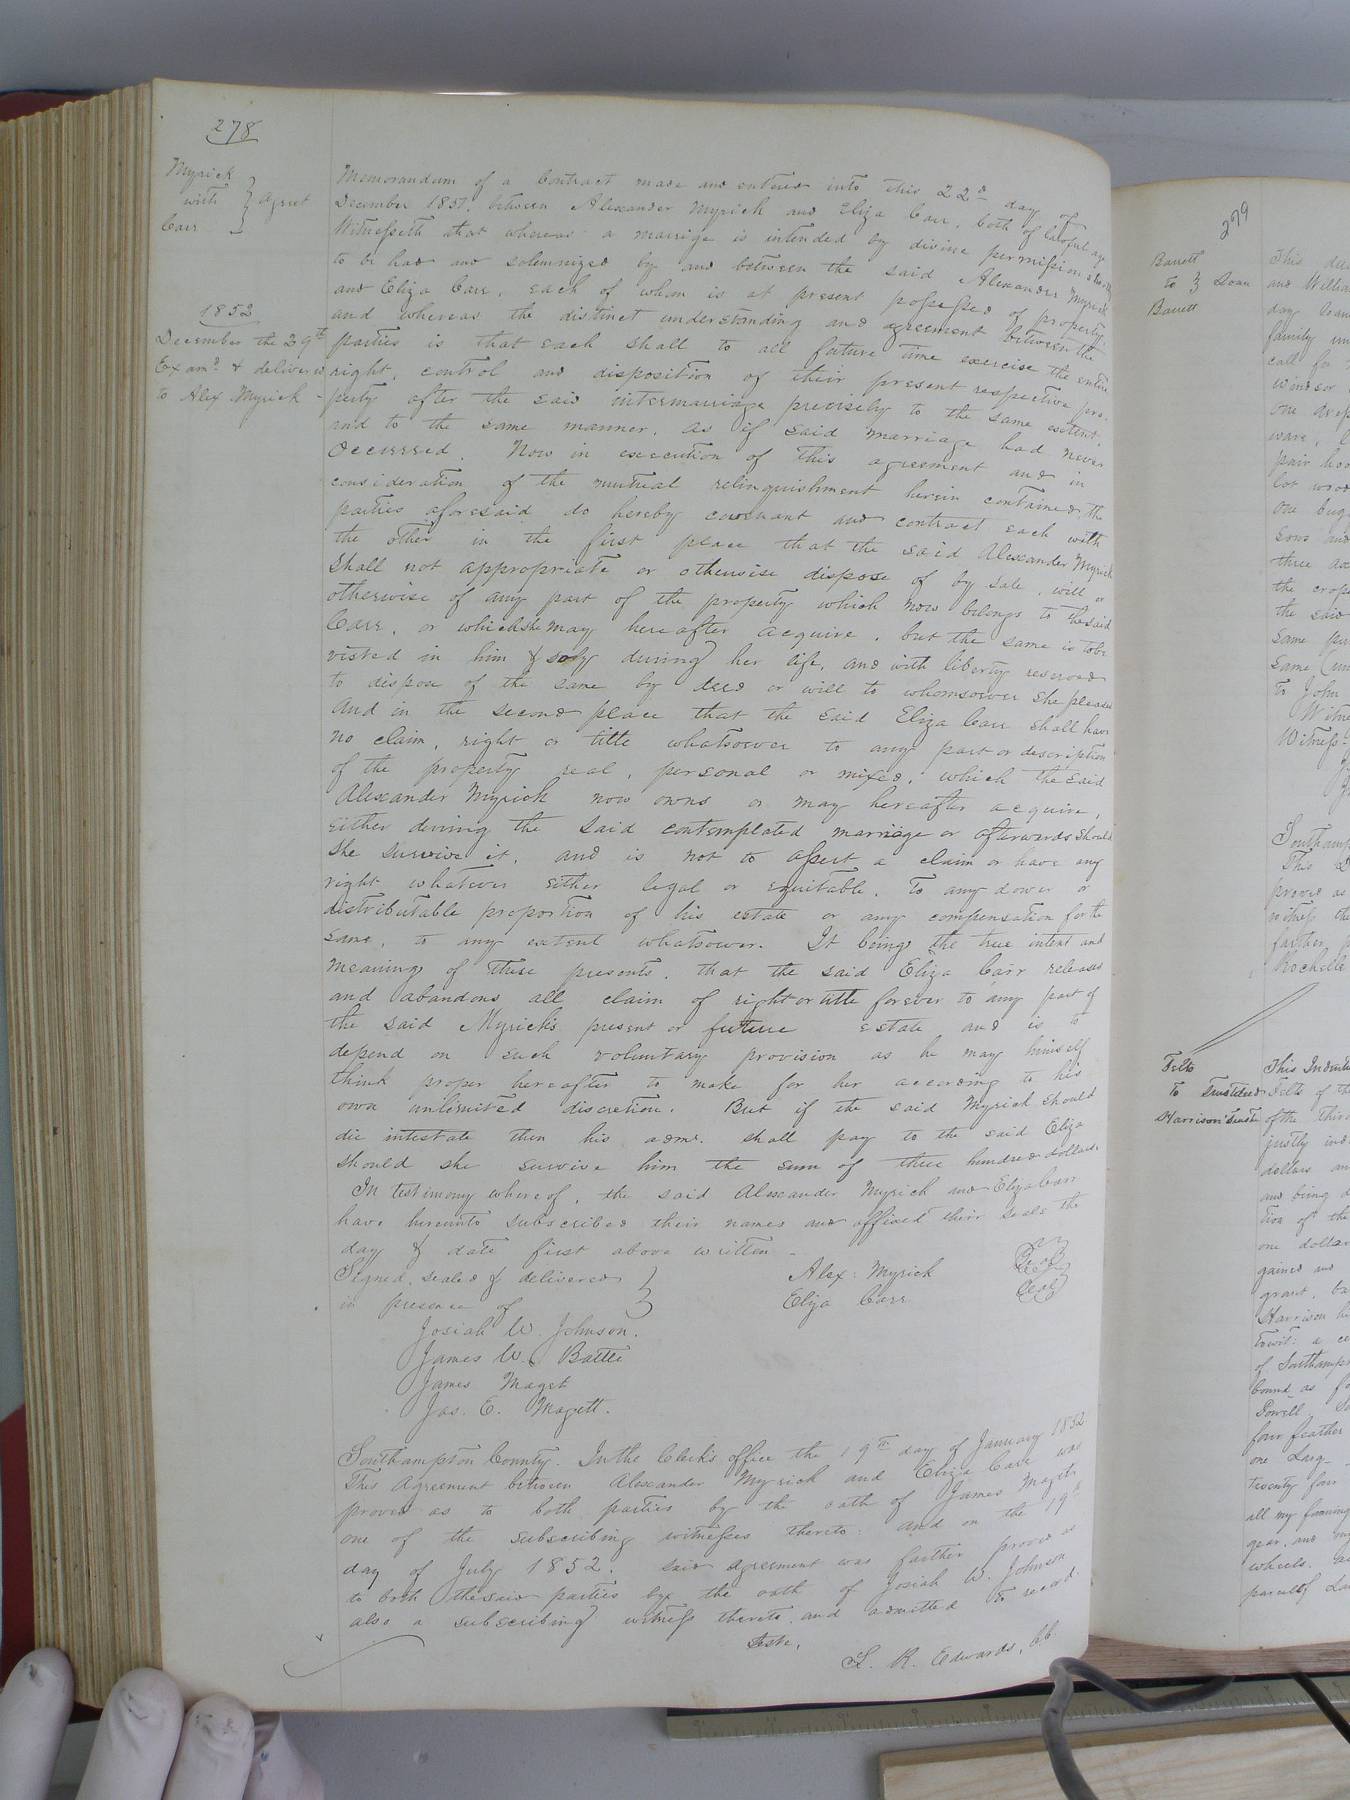 278
Myrick
with } Agreet
Carr
1852
December the 29th
Examd. & delivered
to Alex Myrick -
Memorandum of a Contract made and entered into this 22d day of
December 1851, between Alexander Myrick and Eliza Carr, both of lawful age
Witnesseth that whereas a marrige is intended by divine permission shortly
to be had and solemnized by and between the said Alexander Myrick
and Eliza Carr, each of whom is at present possessed of property,
and whereas the distinct understanding and agreement between the
parties is that each shall to all future time exercise the entire
right, control and disposition of their present respective pro-
perty after the said intermarriage precisely to the same extent,
and to the same manner, as if said marriage had never
Occurred. Now in execution of this agreement and in
consideration of the mutual relinquishment herein contained, the
parties aforesaid do hereby covenant and contract each with
the other in the first place that the said Alexander Myrick
shall not appropriate or otherwise dispose of by sale, will or
otherwise of any part of the property which now belongs to the said
Carr, or which she may hereafter acquire, but the same is to be
vested in him & soly during her life, and with liberty reserved
to dispose of the same by deed or will to whomsoever she pleases
And in the second place that the said Eliza Carr shall have
no claim, right or title whatsoever to any part or description
of the property real, personal or mixed, which the said
Alexander Myrick now owns or may hereafter acquire,
either during the said contemplated marriage or afterwards should
she survive it, and is not to assert a claim or have any
right whatever either legal or equitable, to any dower or
distributable proportion of his estate or any compensation for the
same, to any extent whatsoever. It being the true intent and
meaning of these presents, that the said Eliza Carr releases
and abandons all claim of right or title forever to any part of
the said Myrick's present or future estate and is to
depend on such voluntary provision as he may himself
think proper hereafter to make for her according to his
own unlimited discretion. But if the said Myrick should
die intestate then his admr. shall pay to the said Eliza
should she survive him the sum of three hundred dollars.
In testimony whereof, the said Alexander Myrick and Eliza Carr
have hereunto subscribed their names and affixed their seals the
day & date first above written -
Signed, sealed & delivered } Alex: Myrick Seal
in presence of Eliza Carr Seal
Josiah W. Johnson.
James W. Battle
James Maget
Jas. E. Magett.
Southampton County. In the Clerk's office the 19th day of January 1852
This Agreement between Alexander Myrick and Eliza Carr was
proved as to both parties by the oath of James Magets
one of the subscribing witnesses thereto: and on the 19th
day of July 1852. said agreement was farther proved as
to both the said parties by the oath of Josiah W. Johnson
also a subscribing witness thereto and admitted to record.
Teste,
L. R. Edwards, C.C.
279
Barrett
to } Loan
Barrett
Felts
to Trust deed
Harrison Trustee
This
and William
day
family
call for
windsor
one
ware,
pair
lot wood
one
sows and
three
the crops
the said
same
same
to John
Witness
Southamp
This
proved as
witness the
farther
Rochelle
This Indentu
Felts of the
of the third
justly ind
dollars an
and being d
tion of the
one dollar
gained and
grant, ba
Harrison
towit: a
of Southamp
bound as
Powell
four feather
one Larg
twenty four
all my farming
gear, and my
wheels,
parcel of Lan